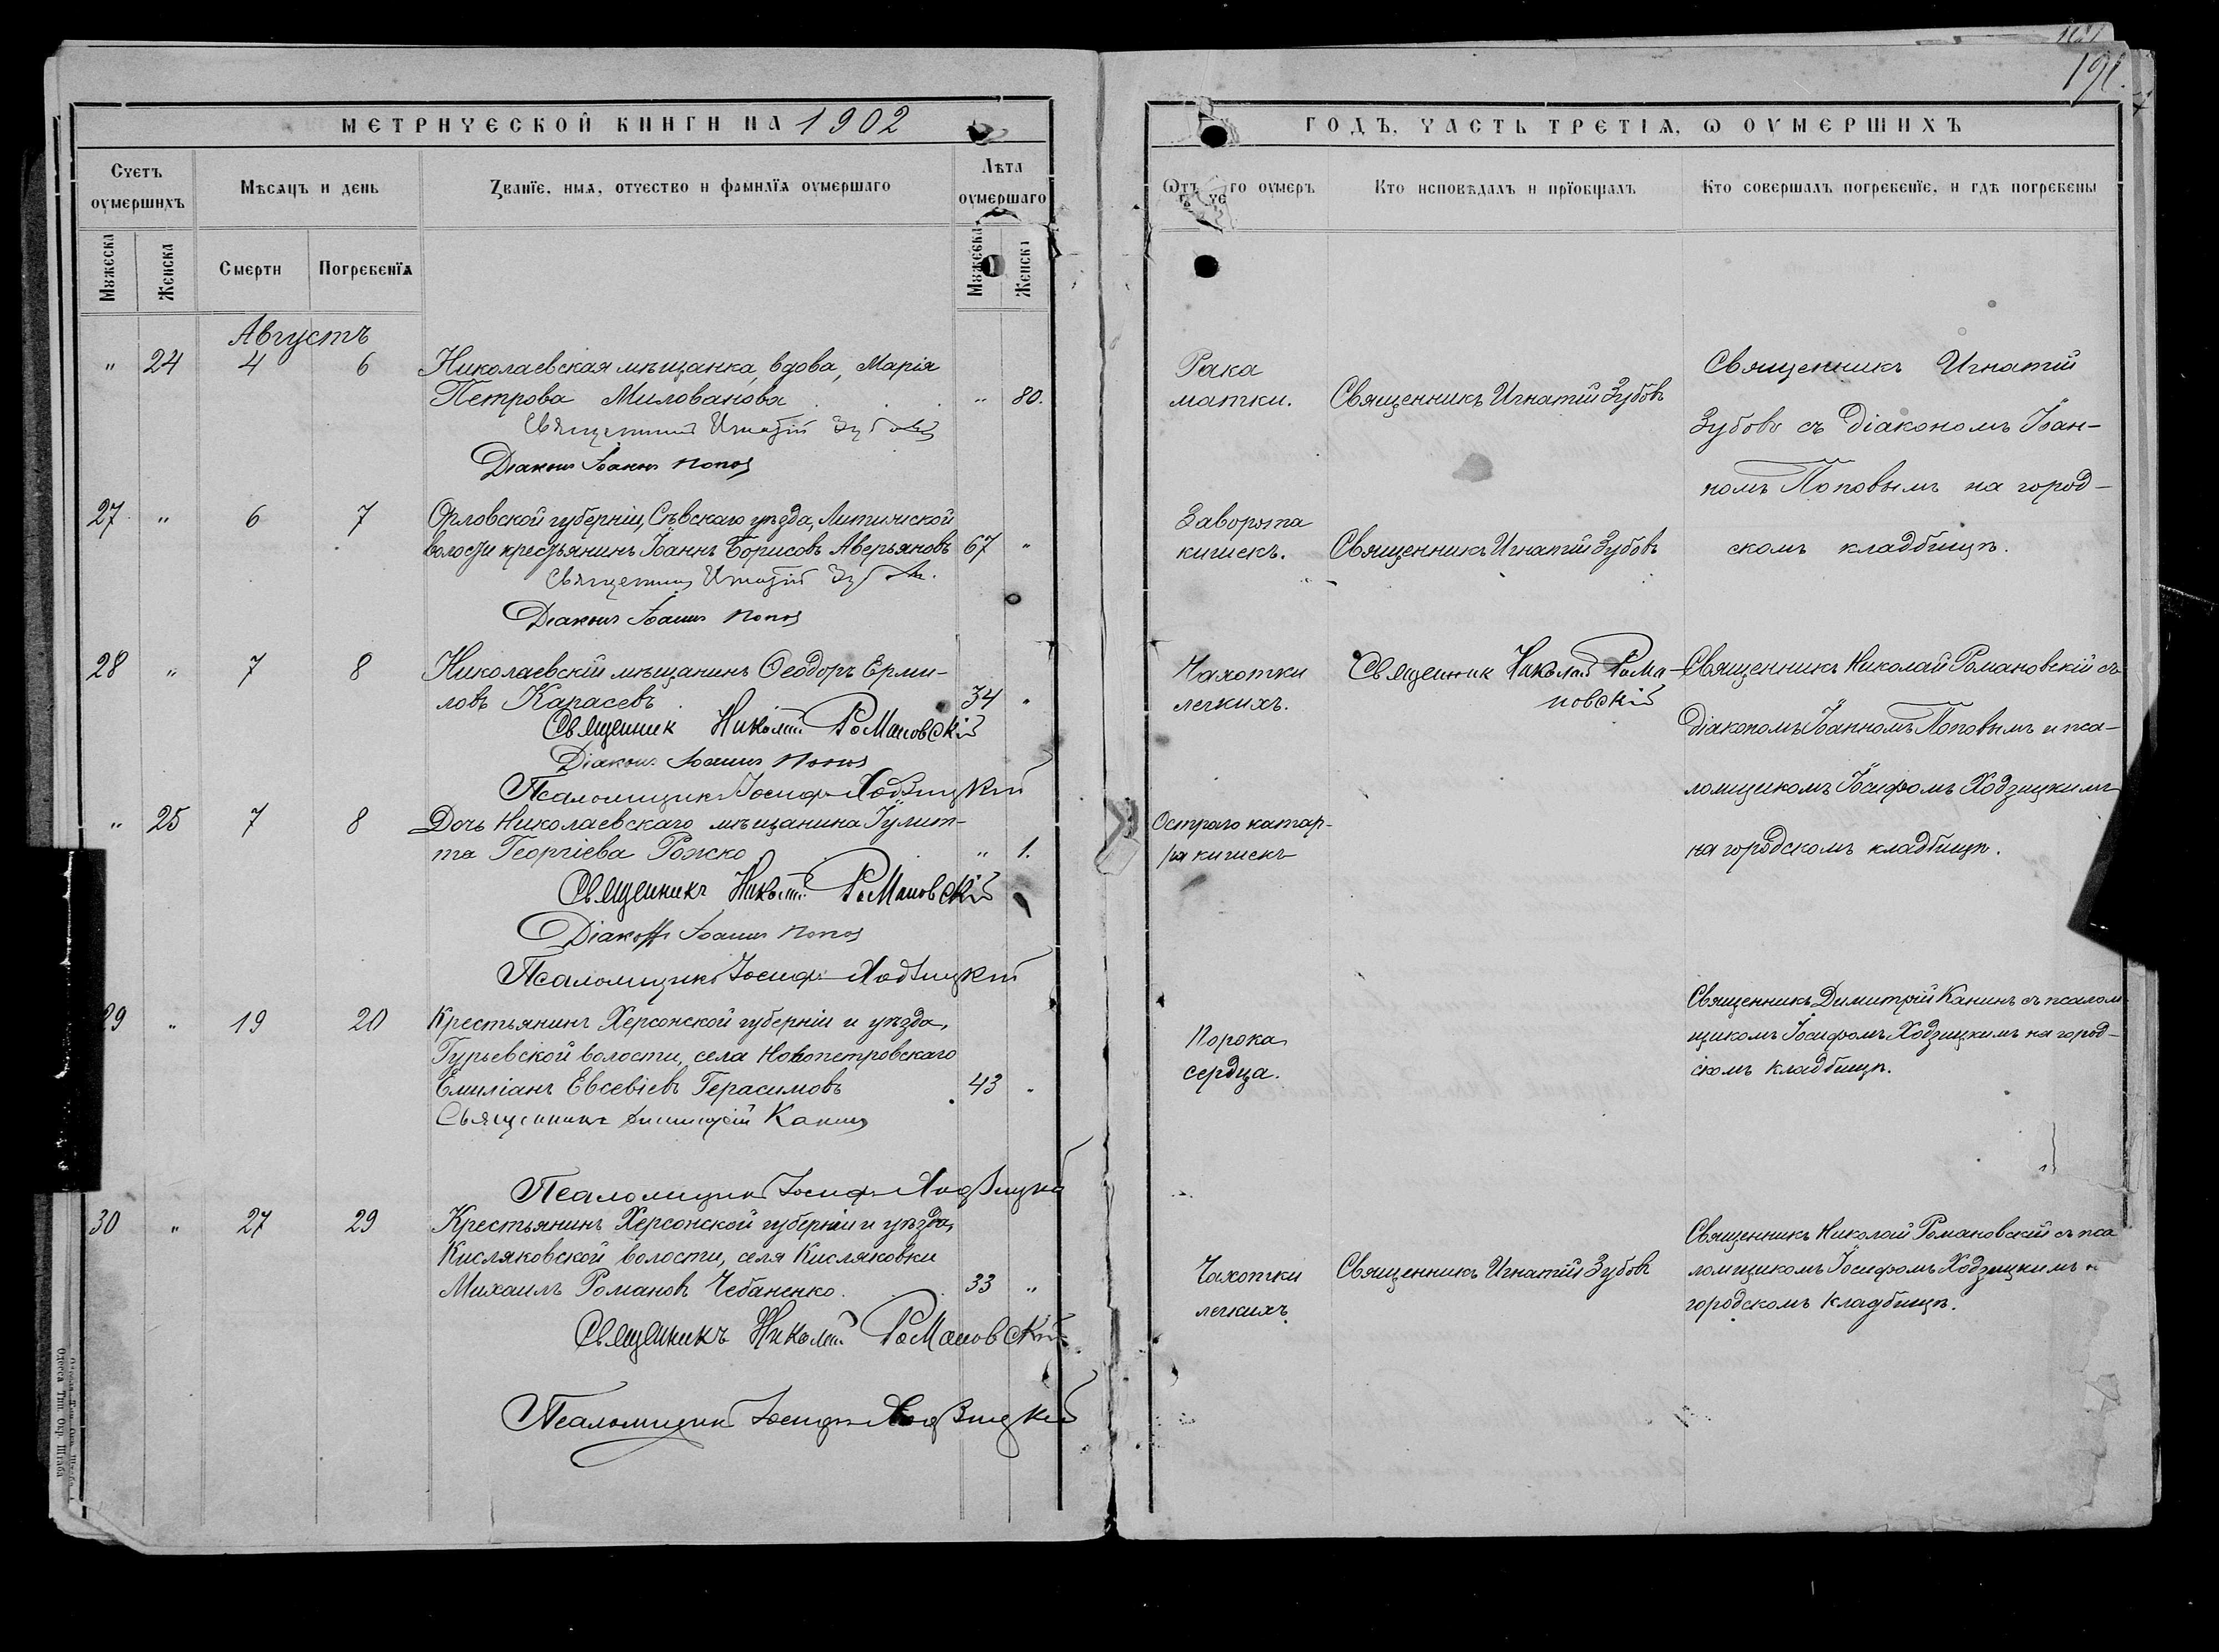 191.
МЕТРИЧЕСКОЙ КНИГИ НА 1902
ГОДЪ, ЧАСТЬ ТРЕТІѦ, Ѡ ОУМЕРШИХЪ
Счетъ оумершихъ
Мѣсѧцъ и день
Званїе, имѧ, отчество и фамилїѧ оумершаго
Лѣта оумершаго
Ѿ чего оумеръ
Кто исповѣдалъ и прїобщалъ
Кто совершалъ погребенїе, и гдѣ погребены
Мꙋжеска
Женска
Смерти
Погребенїѧ
Мꙋжеска
Женска
Августъ
" 24 4 6 Николаевская мѣщанка, вдова, Марія
Петрова Милованова " 80.
Священникъ Игнатій Зубовъ
Діаконъ Іоаннъ Поповъ
Рака
матки.
Священникъ Игнатій Зубовъ
Священникъ Игнатій
Зубовъ съ діакономъ Іоан-
номъ Поповымъ на город-
скомъ кладбищѣ.
27 " 6 7 Орловской губерніи, Сѣвскаго уѣзда,
волости крестьянинъ Іоаннъ Борисовъ Аверьяновъ 67 "
Священникъ Игнатій Зубовъ
Діаконъ Іоаннъ Поповъ
Заворота
кишекъ.
Священникъ Игнатій Зубовъ
28 " 7 8 Николаевскій мѣщанинъ Ѳеодоръ Ерми-
ловъ Карасевъ 34 "
Священник Николай Романовскій
Діаконъ Іоаннъ Поповъ
Псаломщикъ Іосифъ Ходзицкій
Чахотки
легкихъ.
Священник Николай Рома-
новскій
Священникъ Николай Романовскій съ
діакономъ Іоанномъ Поповымъ и пса-
ломщикомъ Іосифомъ Ходзицкимъ
на городскомъ кладбищѣ.
" 25 7 8 Дочь Николаевскаго мѣщанина Іулит-
та Георгіева Рожко " 1.
Священникъ Николай Романовскій
Діаконъ Іоаннъ Поповъ
Псаломщикъ Іосифъ Ходзицкій
Остраго катар-
ра кишекъ
29 " 19 20 Крестьянинъ Херсонской губерніи и уѣзда,
Гурьевской волости, села Новопетровскаго
Емиліанъ Евсевіевъ Герасимовъ 43 "
Священникъ Димитрій Канинъ
Псаломщикъ Іосифъ Ходзицкій
Порока
сердца.
Священникъ Димитрій Канинъ съ псалом-
щикомъ Іосифомъ Ходзицкимъ на город-
скомъ кладбищѣ.
30 " 27 29 Крестьянинъ Херсонской губерніи и уѣзда,
Кисляковской волости, села Кисляковки
Михаилъ Романовъ Чебаненко. 33 "
Священникъ Николай Романовскій
Псаломщикъ Іосифъ Ходзицкій
Чахотки
легкихъ.
Священникъ Игнатій Зубовъ
Священникъ Николай Романовскій съ пса
ломщикомъ Іосифомъ Ходзицкимъ н
городскомъ кладбищѣ.
Одесса Тип. Окр. Штаба